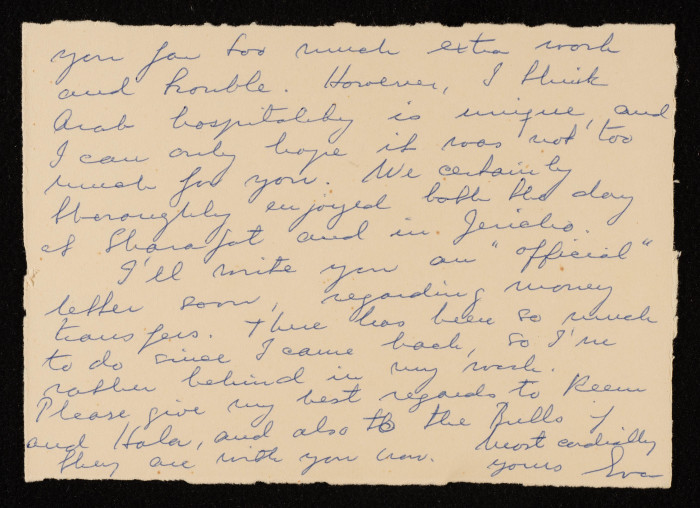 you far too much extra work
and trouble. However, I think
Arab hospitality is unique, and
I can only hope it was not too
much for you. We certainly
thoroughly enjoyed both the day
at Sharafat and in Jericho.
I'll write you an "official"
letter soon, regarding money
transfers. There has been so much
to do since I came back, so I'm
rather behind in my work.
Please give my best regards to Reem
and Hala, and also to the Bulls if
they are with you now. Most cordially
yours Eva